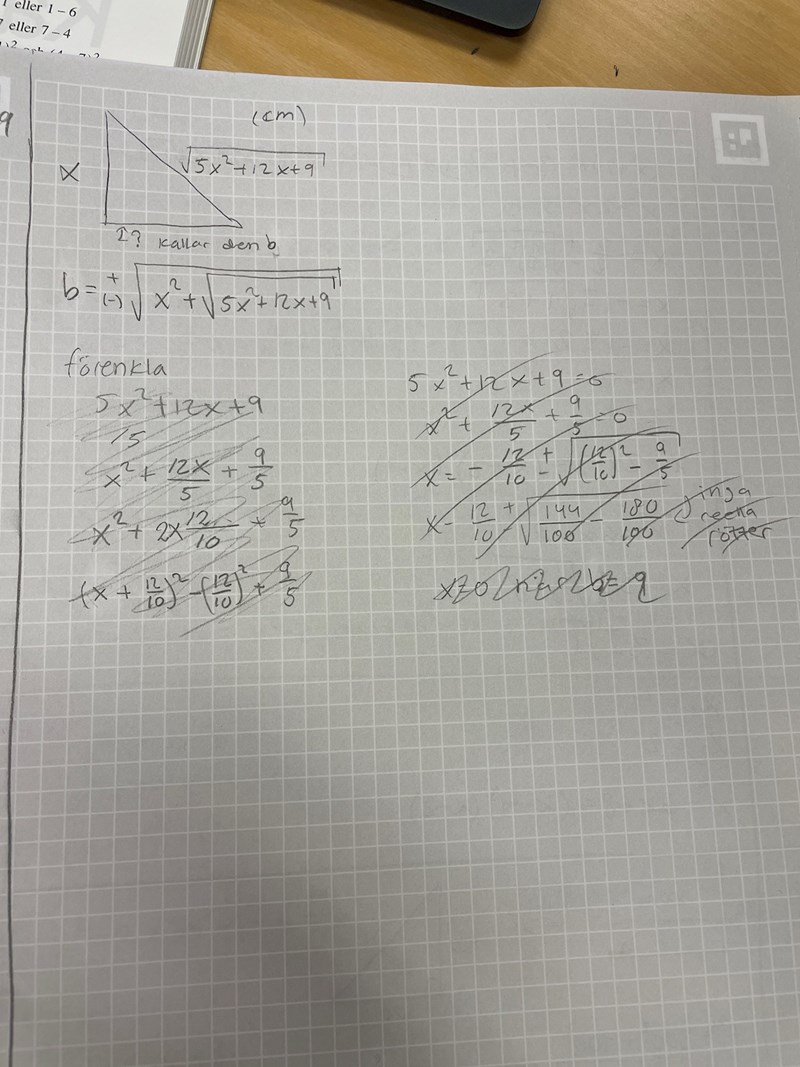 eller 1 – 6
eller 7 – 4
9
(cm)
x
√5x²+12x+9
? kallar den b
b = + (-) √x² + √5x²+12x+9
förenkla
5x²+12x+9
/5
x² + 12x/5 + 9/5
x² + 2x 12/10 + 9/5
(x + 12/10)² - (12/10)² + 9/5
5x²+12x+9=0
x² + 12x/5 + 9/5 = 0
x = - 12/10 ± √(12/10)² - 9/5
x - 12/10 ± √144/100 - 180/100 inga
reella
rötter